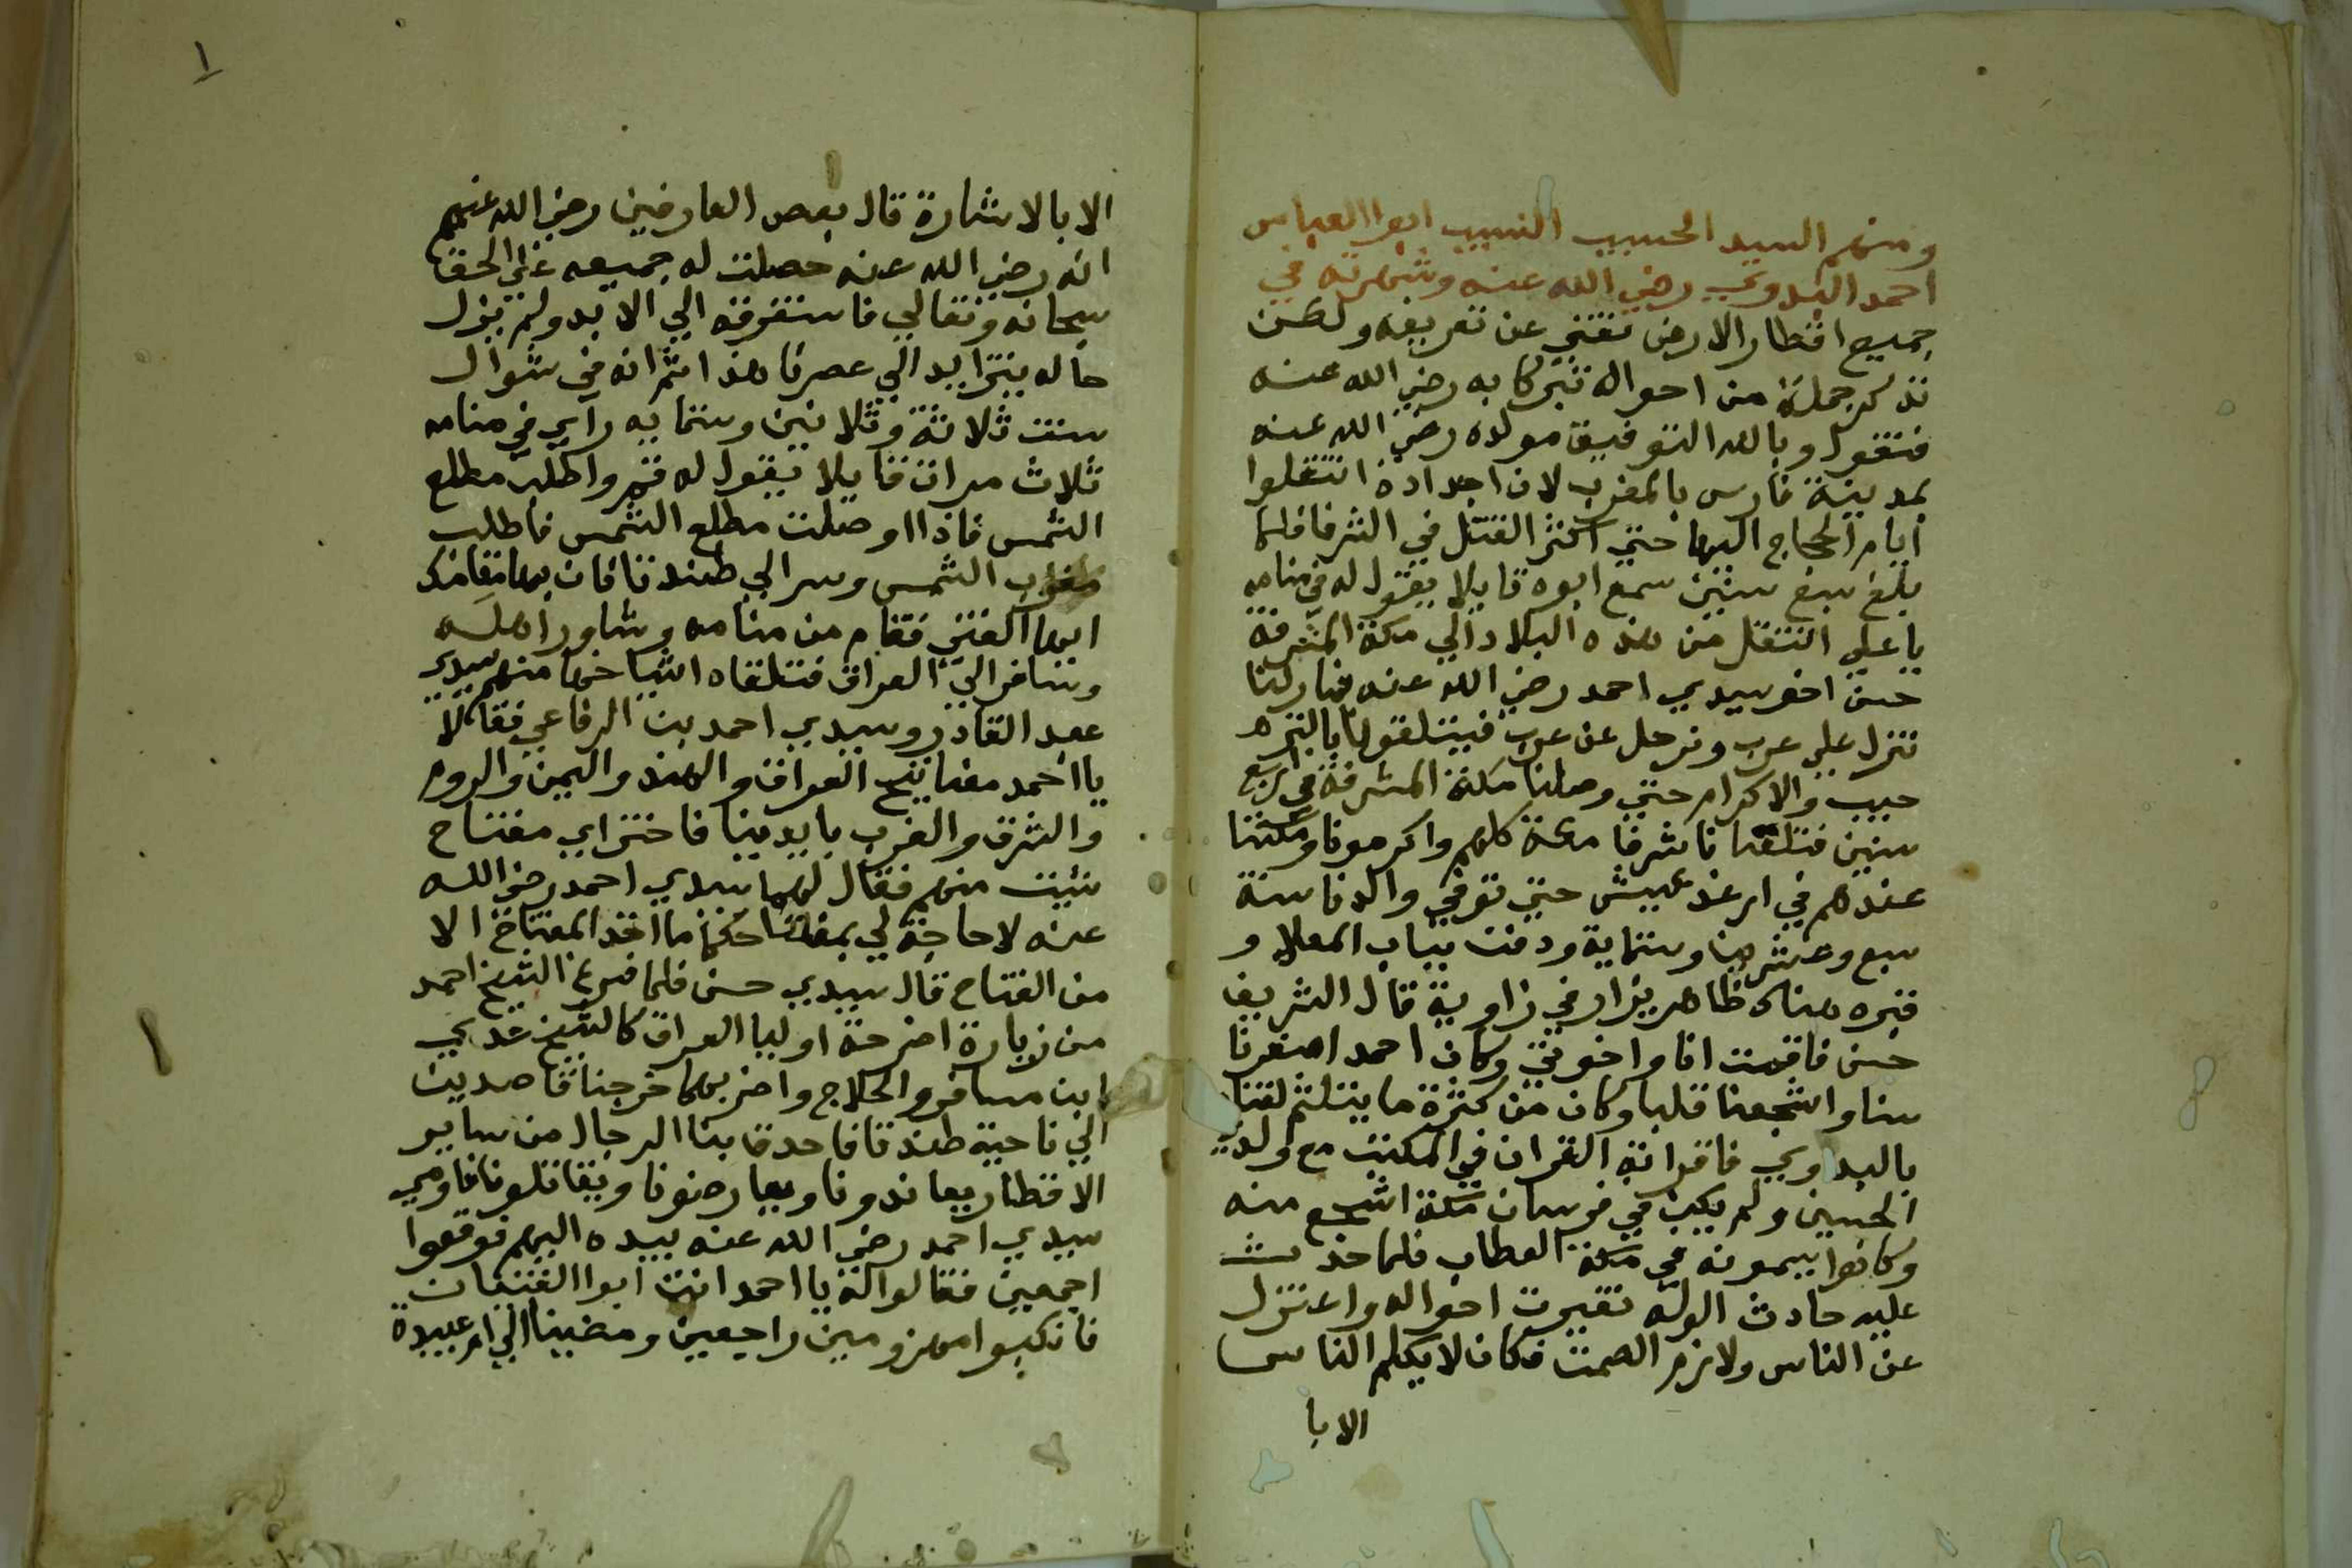 ومنهم السيد الحسيب النسيب ابوا العباس
احمد البدوي رضي الله عنه وشهرته في
جميع اقطار الارض تغني عن تعريفه ولكن
نذكر جملة من احواله تبركا به رضي الله عنه
فنقول وبالله التوفيق مولده رضي الله عنه
بمدينة فارس بالمغرب لان اجداده انتقلوا
ايام الحجاج اليها حتي اكثر القتل في الشرفا فلما
بلغ سبع سنين سمع ابوه قايلا يقول له في منامه
يا علي انتقل من هذه البلاد الي مكة المشرفة
حسن اخو سيدي احمد رضي الله عنه فمازلنا
ننزل علي عرب ونرحل عن عرب فيتلقونا بالتر
حيب والاكرام حتي وصلنا مكة المشرفة في اربع
سنين فتلقانا شرفا مكة كلهم واكرمونا ومكثنا
عندهم في ارغد عيش حتي توفي والدنا سنة
سبع وعشرين وستماية ودفن بباب المعلا و
قبره هناك ظاهر يزار في زاوية قال الشريف
حسن فاقمت انا واخوتي وكان احمد اصغرنا
سنا واشجعنا قلبا وكان من كثرة ما يتلثم لقبناه
بالبداوي فاقراته القران في المكتب مع ولدي
الحسين ولم يكن في فرسان مكة اشجع منه
وكانوا يسمونه في مكة العطاب فلما حدث
عليه حادث الوله تغيرت احواله واعتزل
عن الناس ولازم الصمت فكان لا يكلم الناس
الا با
١
الا بالاشارة قال بعض العارفين رضي الله عنهم
انه رضي الله عنه حصلت له جميعه علي الحق
سبحانه وتعالي فاستغرقه الي الابد ولم يزل
حاله يتزايد الي عصرنا هذا ثم انه في شوال
سنت ثلاثة وثلاثين وستمايه راي في منامه
ثلاث مرات قايلا يقول له قم واطلب مطلع
الشمس فاذا اوصلت مطلع الشمس فاطلب
مغرب الشمس وسر الي طندتا فان بها مقامك
ايها الفتي فقام من منامه وشاور اهله
وسافر الي العراق فتلقاه اشياخها منهم سيدي
عبد القادر وسيدي احمد بن الرفاعي فقالا
يا احمد مفاتيح العراق والهند واليمن والروم
والشرق والغرب بايدينا فاختر اي مفتاح
شيت منهم فقال لهما سيدي احمد رضي الله
عنه لا حاجة لي بمفاتحكما ما اخذ المفتاح الا
من الفتاح قال سيدي حسن فلما فرغ الشيخ احمد
من زيارة اضرحة اوليا العراق كالشيخ عدي
ابن مسافر والحلاج واضربهما خرجنا قاصدين
الي ناحية طندتا فاحدق بنا الرجال من ساير
الاقطار يعاندونا ويعارضونا ويقاتلونا فاومي
سيدي احمد رضي الله عنه بيده اليهم فوقعوا
اجمعين فقالوا له يا احمد انت ابوا الفتيان
فانكبوا مهزومين راجعين ومضينا الي ام عبيدة